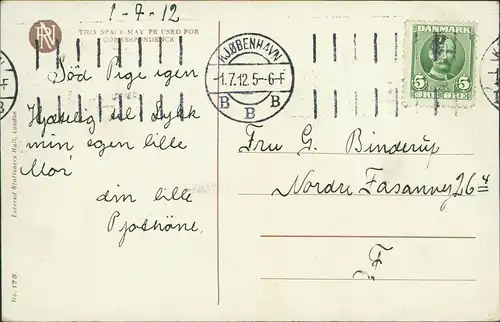 1-7-12
RN
THIS SPACE MAY BE USED FOR
CORRESPONDENCE
Sød Pige igen
Hjertelig til Lykk
min egen lille
Mor
din lille
Entered Stationers Hall, London
No. 178
KJØBENHAVN
-1.7.12.5-6-F
B B B
DANMARK
5 5
ØRE ØRE
Fru G. Binderup
Nordre Fasanvej 26 4
F